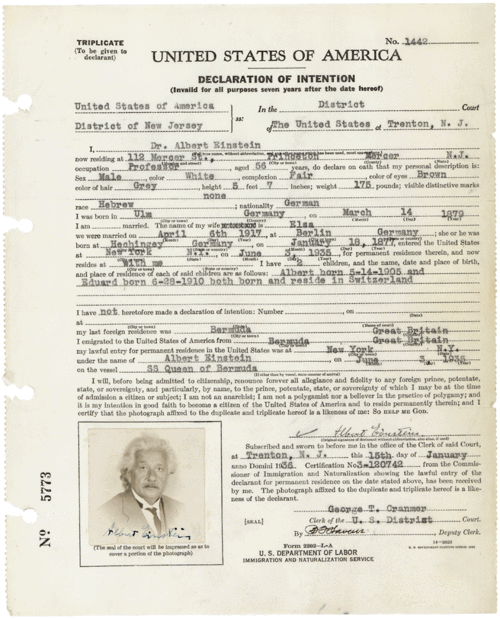 TRIPLICATE
(To be given to declarant)
No. 1442
UNITED STATES OF AMERICA
DECLARATION OF INTENTION
(Invalid for all purposes seven years after the date hereof)
United States of America
District of New Jersey
ss:
In the District Court
of The United States at Trenton, N. J.
I, Dr. Albert Einstein
now residing at 112 Mercer St., Princeton Mercer N.J.
occupation Professor, aged 56 years, do declare on oath that my personal description is:
Sex Male, color White, complexion Fair, color of eyes Brown
color of hair Grey, height 5 feet 7 inches; weight 175 pounds; visible distinctive marks
none
race Hebrew; nationality German
I was born in Ulm Germany, on March 14 1879
I am married. The name of my wife is Elsa
we were married on April 6th 1917, at Berlin Germany; she or he was
born at Hechingen Germany, on January 18, 1877, entered the United States
at New York N.Y., on June 3 1935, for permanent residence therein, and now
resides at with me. I have 2 children, and the name, date and place of birth,
and place of residence of each of said children are as follows: Albert born 5-14-1905 and
Eduard born 6-28-1910 both born and reside in Switzerland
I have not heretofore made a declaration of intention: Number, on
at
my last foreign residence was Bermuda Great Britain
I emigrated to the United States of America from Bermuda Great Britain
my lawful entry for permanent residence in the United States was at New York N.Y.
under the name of Albert Einstein, on June 3 1935
on the vessel SS Queen of Bermuda
I will, before being admitted to citizenship, renounce forever all allegiance and fidelity to any foreign prince, potentate,
state, or sovereignty, and particularly, by name, to the prince, potentate, state, or sovereignty of which I may be at the time
of admission a citizen or subject; I am not an anarchist; I am not a polygamist nor a believer in the practice of polygamy; and
it is my intention in good faith to become a citizen of the United States of America and to reside permanently therein; and I
certify that the photograph affixed to the duplicate and triplicate hereof is a likeness of me: SO HELP ME GOD.
Albert Einstein
Subscribed and sworn to before me in the office of the Clerk of said Court,
at Trenton, N. J. this 15th day of January
anno Domini 1936. Certification No 3-120742 from the Commissioner
of Immigration and Naturalization showing the lawful entry of the
declarant for permanent residence on the date stated above, has been received
by me. The photograph affixed to the duplicate and triplicate hereof is a likeness
of the declarant.
George T. Cranmer
[SEAL]
Clerk of the U. S. District Court.
By Deputy Clerk.
Form 2202-L-A
U. S. DEPARTMENT OF LABOR
IMMIGRATION AND NATURALIZATION SERVICE
No 5773
Albert Einstein
(The seal of the court will be impressed so as to cover a portion of the photograph)